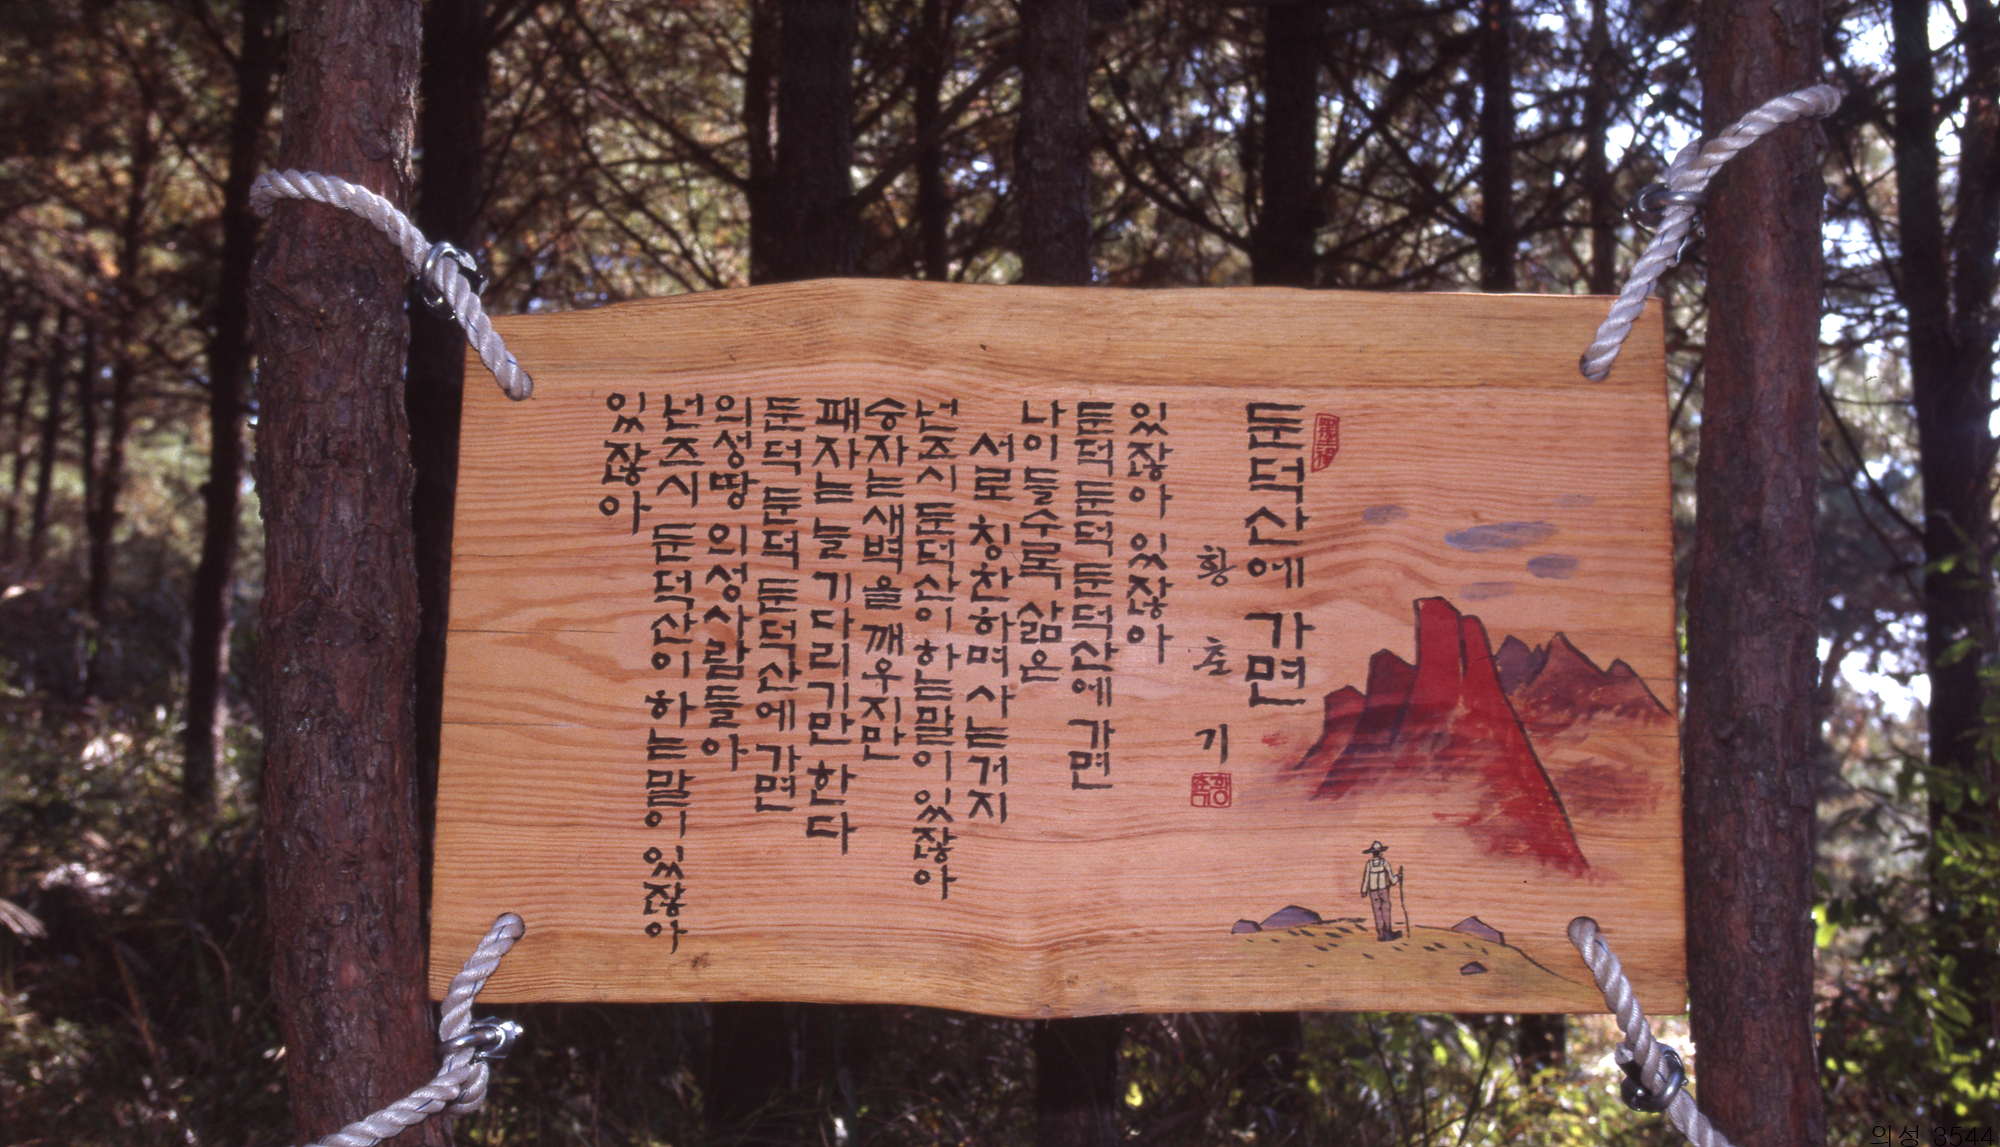 둔덕산에 가면
황 초 기
있잖아 있잖아
둔덕 둔덕 둔덕산에 가면
나이 들수록 삶은
서로 칭찬하며 사는 거지
넌즈시 둔덕산이 하는 말이 있잖아
승자는 새벽을 깨우지만
패자는 늘 기다리기만 한다
둔덕 둔덕 둔덕산에 가면
의성땅 의성사람들아
넌즈시 둔덕산이 하는 말이 있잖아
있잖아
의성 3544